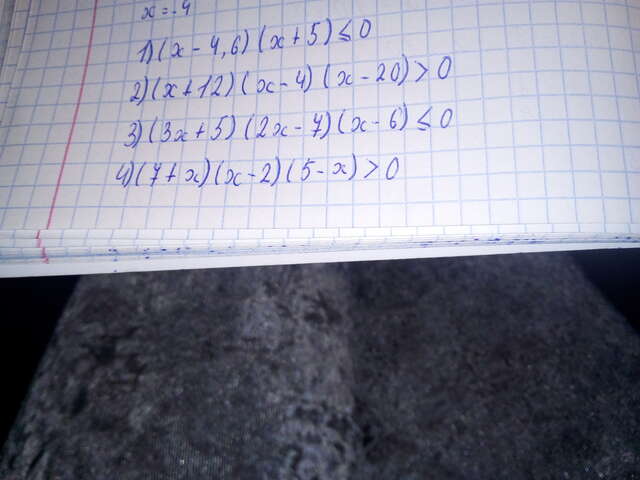 x = -4
1) (x - 4,6) (x + 5) ≤ 0
2) (x + 12) (x - 4) (x - 20) > 0
3) (3x + 5) (2x - 7) (x - 6) ≤ 0
4) (7 + x) (x - 2) (5 - x) > 0